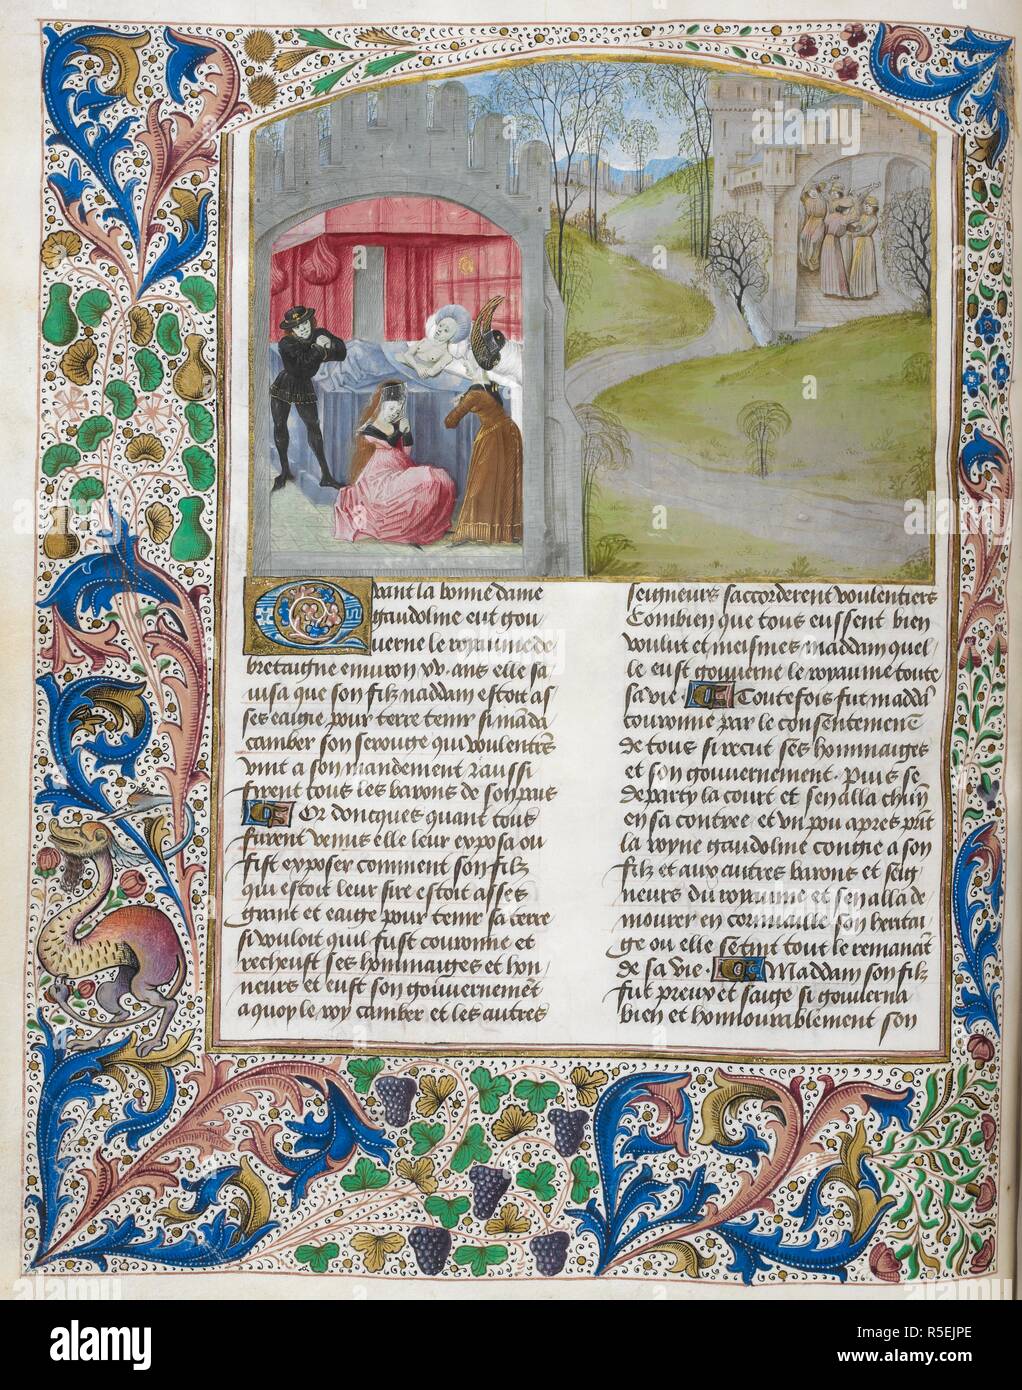 Quant la bonne dame
gaudoline eut gou
uerne le royaume de
bretaigne enuiron xv. ans elle sa
uisa que son filz maddam estoit as
ses eaigie pour terre tenir si manda
camber son serouge qui voulentrs
vint a son mandement & aussi
firent tous les barons de son pais
Or doncques quant tous
furent venus elle leur exposa ou
fist exposer comment son filz
qui estoit leur sire estoit asses
grant et eaige pour tenir sa terre
si vouloit quil fust couronne et
recheust ses hommaiges et hon
neurs et eust son gouuernement
a quoy le roy camber et les autres
seigneurs saccorderent voulentiers
Combien que tous eussent bien
voulut et meismes maddam quel
le eust gouuerne le royaume toute
sa vie. Toutefois fut madda
couronne par le consentemen
de tous si recut ses hommaiges
et son gouuernement. puis se
departy la court et sen alla chun
en sa contree et vn pou apres prit
la royne gaudoline congie a son
filz et aux autres barons et seig
neurs du royaume et sen alla de
mourer en cornuaille son herita
ge ou elle se tint tout le remanat
de sa vie. Maddam son filz
fut preux et saige si gouuerna
bien et honnourablement son
alamy
Image ID: R5EJPE
www.alamy.com